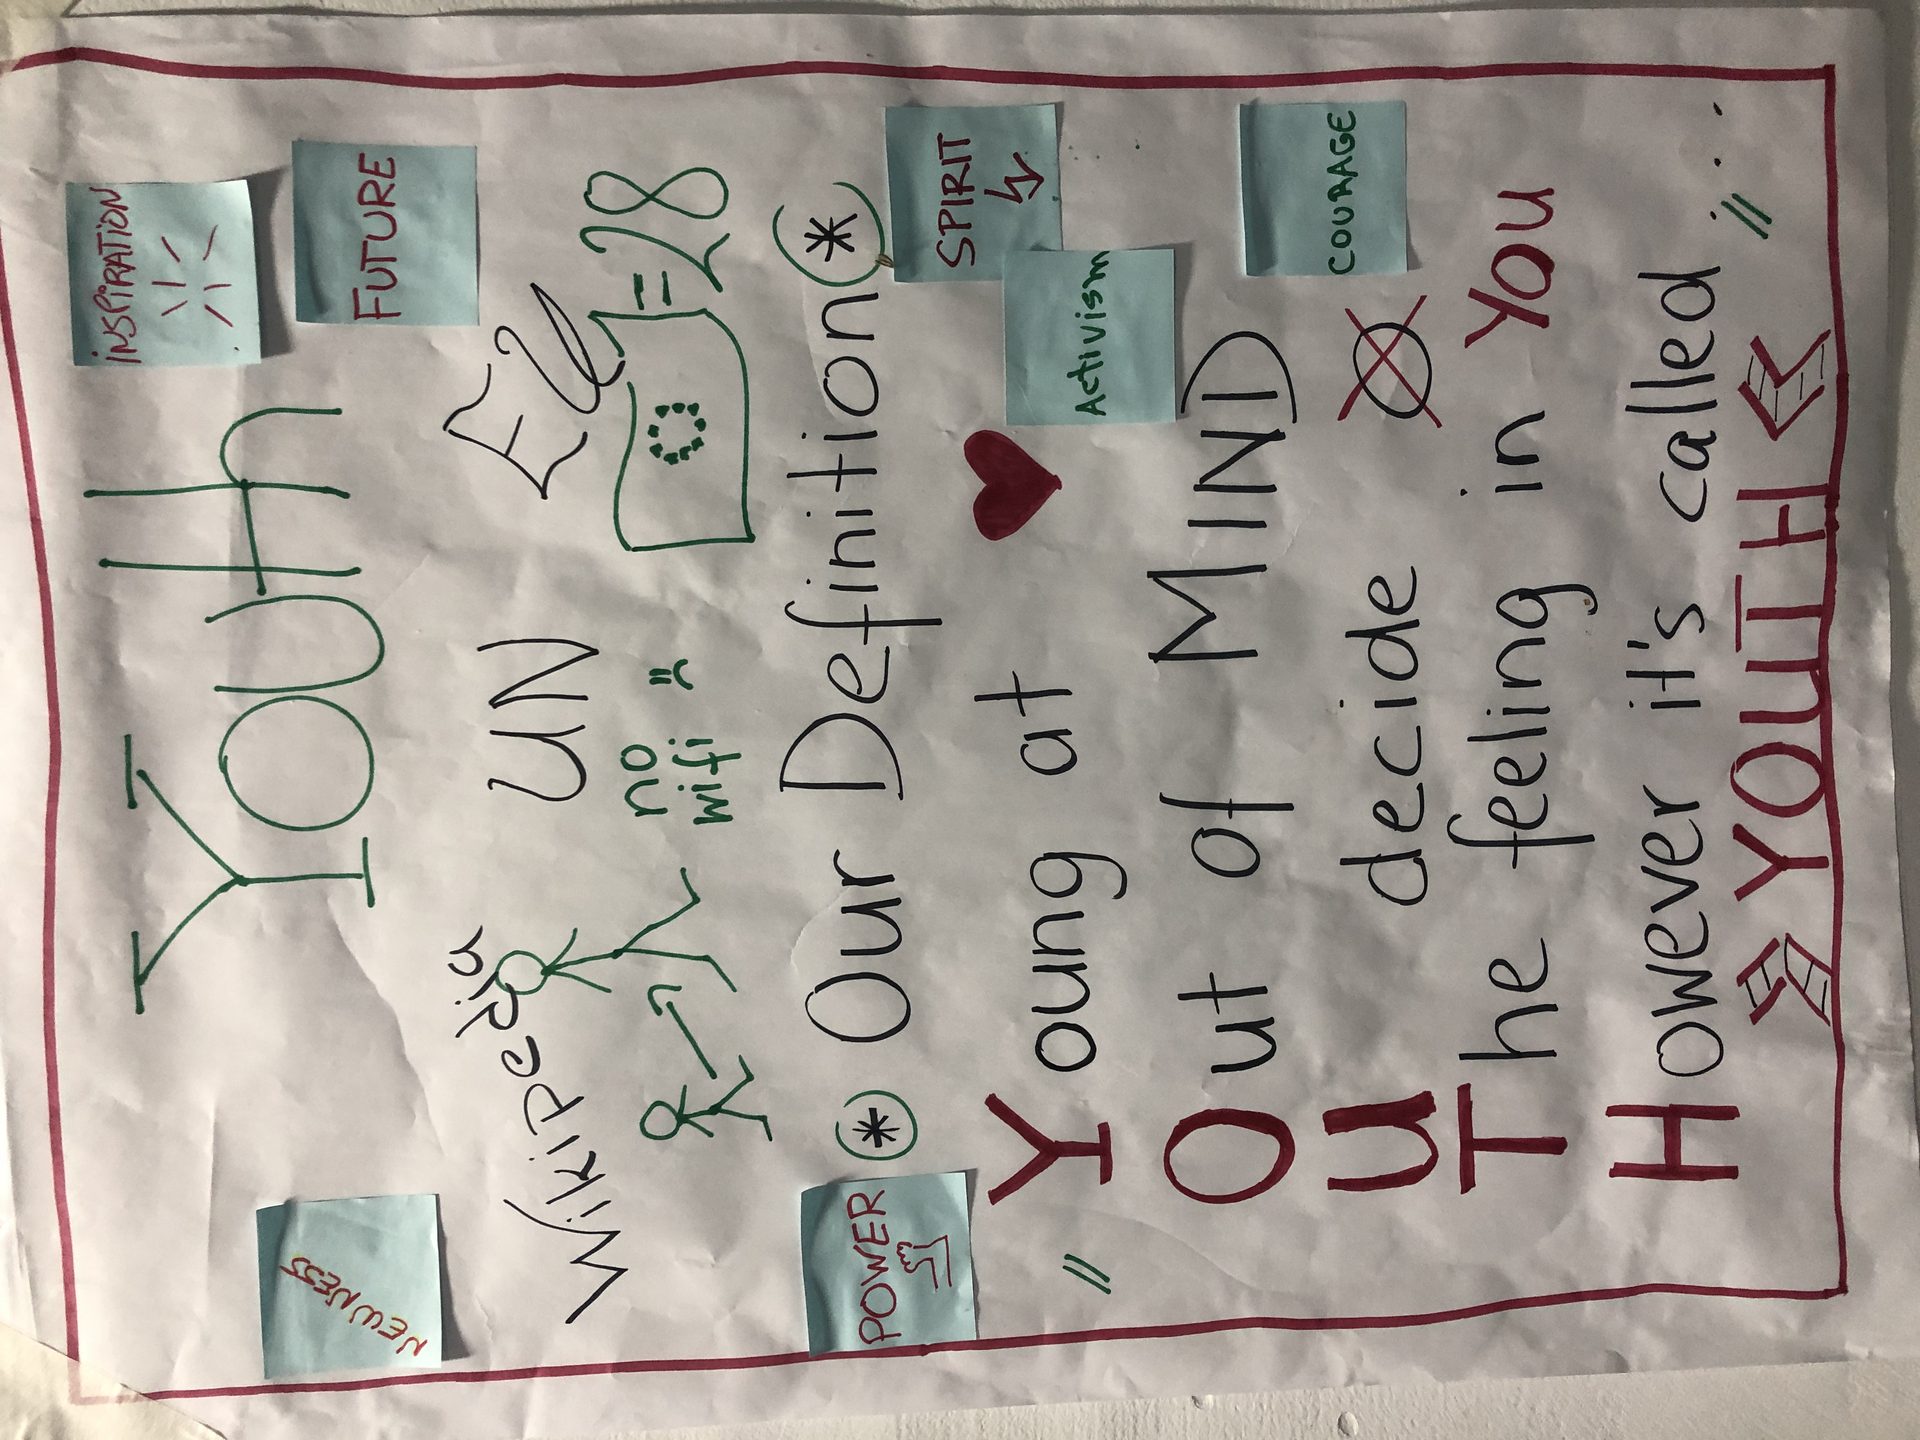 YOUth
INSPIRATION
NEWNESS
FUTURE
Wikipedia UN EU
no wifi
=28
* Our Definition *
POWER
SPIRIT
"Young at
Activism
Out of MIND
COURAGE
U decide
The feeling in YOU
However it's called" ...
YOUTH